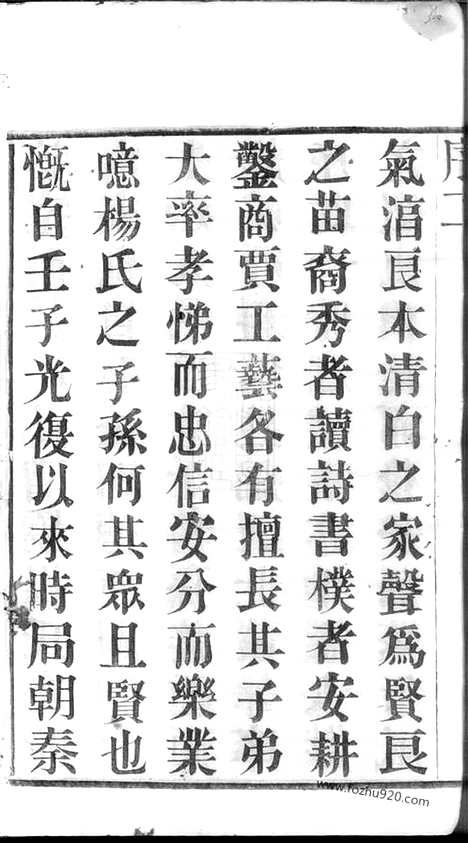 氣涫良本清白之家聲爲賢良
之苗裔秀者讀詩書樸者安耕
鑿商賈工藝各有擅長其子弟
大率孝悌而忠信安分而樂業
噫楊氏之子孫何其衆且賢也
慨自壬子光復以來時局朝秦
www.fozhu920.com